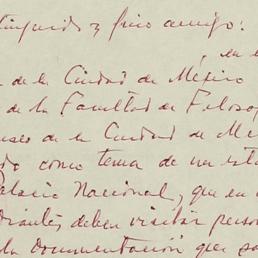 tinguido y fino amigo:
, en e
a de la Ciudad de México
de la Facultad de Filoso
useo de la Ciudad de Mé
do como tema de un est
alacio Nacional, que en
diantes, deben visitar perso
la documentación que pa